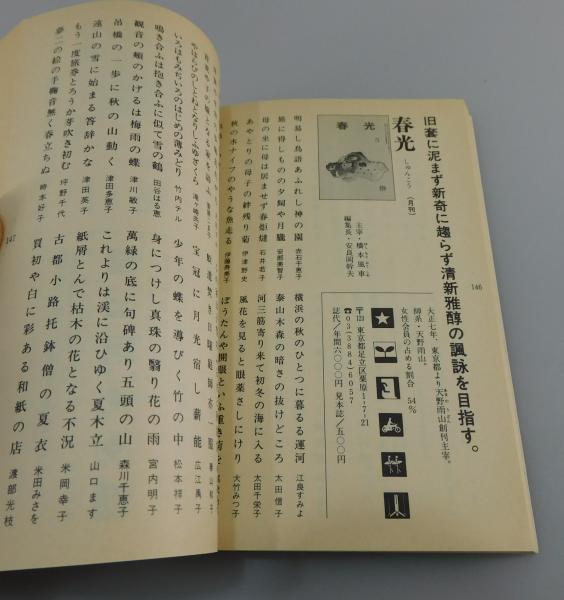 146
旧套に泥まず新奇に趨らず清新雅醇の諷詠を目指す。
春光
しゅんこう
(月刊)
春光
主宰・橋本風車
編集長・安良岡幹夫
大正七年、東京都より天野雨山創刊主宰。
師系・天野雨山。
女性会員の占める割合 54%
〒121 東京都足立区栗原1-7-21
☎03(3884)6057
誌代/年間六〇〇〇円 見本誌/五〇〇円
明易し鳥語あふれし神の園 赤石千恵子
旅に得しものの夕餉や月朧 安部美智子
母の里に母は居ませず春炬燵 石井若子
あやとりの母子の絆残り菊 伊津野史
秋の水ナイフのやうな魚走る 伊藤寿美子
横浜の秋のひとつに暮るる運河 江良すみよ
泰山木森の暗さの抜けどころ 太田信子
河三筋寄り来て初冬の海に入る 太田千栄子
風花を見ると眼薬さしにけり 大竹みつ子
147
いろはもみぢいろのはじめの薄みどり 竹内テル
鳴き合ふは抱き合ふに似て雪の鶴 田谷はる恵
観音の頬のかげるは梅雨の蝶 津川敏子
吊橋の一歩に秋の山動く 津田多恵子
遠山の雪に始まる答辞かな 津田英子
もう一度旅券とろうか芽吹き初む 坪野千代
夢二の絵の手鞠音無く春立ちぬ 時本好子
宝冠に月光宿し薪能 広江萬子
少年の蝶を導びく竹の中 松本祥子
身につけし真珠の翳り花の雨 宮内明子
万緑の底に句碑あり五頭の山 森川千恵子
これよりは渓に沿ひゆく夏木立 山口ます
紙屑とんで枯木の花となる不況 米岡幸子
古都小路托鉢僧の夏衣 米田みさを
買初や白に彩ある和紙の店 渡部光枝